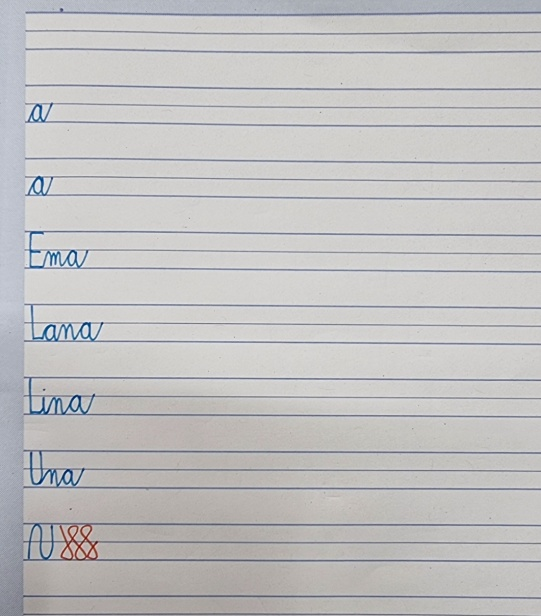 a
a
Ema
Lana
Lina
Una
N